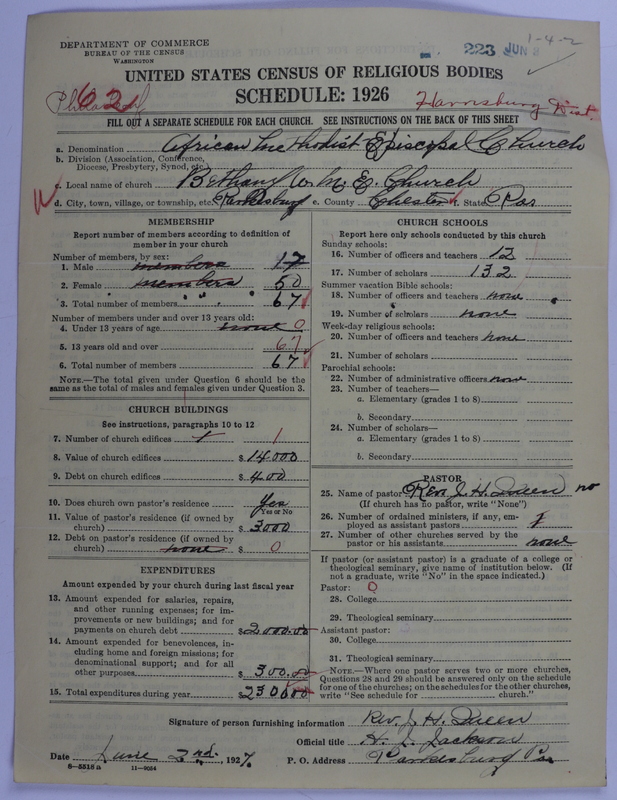 DEPARTMENT OF COMMERCE
BUREAU OF THE CENSUS
WASHINGTON
1-4-2
223 JUN
UNITED STATES CENSUS OF RELIGIOUS BODIES
SCHEDULE: 1926
62
Harrisburg Dist.
FILL OUT A SEPARATE SCHEDULE FOR EACH CHURCH. SEE INSTRUCTIONS ON THE BACK OF THIS SHEET
a. Denomination African Methodist Episcopal Church
b. Division (Association, Conference, Diocese, Presbytery, Synod, etc.)
c. Local name of church Bethany A. M. E. Church
d. City, town, village, or township, etc. Parkesburg e. County Chester f. State Pa
MEMBERSHIP
Report number of members according to definition of
member in your church
Number of members, by sex:
1. Male members 17
2. Female members 50
3. Total number of members " " 67
Number of members under and over 13 years old:
4. Under 13 years of age none 0
5. 13 years old and over 67
6. Total number of members 67
NOTE.—The total given under Question 6 should be the
same as the total of males and females given under Question 3.
CHURCH BUILDINGS
See instructions, paragraphs 10 to 12
7. Number of church edifices 1 1
8. Value of church edifices $14000
9. Debt on church edifices $400
10. Does church own pastor's residence Yes
Yes or No
11. Value of pastor's residence (if owned by
church) $3000
12. Debt on pastor's residence (if owned by
church) none $0
EXPENDITURES
Amount expended by your church during last fiscal year
13. Amount expended for salaries, repairs,
and other running expenses; for im-
provements or new buildings; and for
payments on church debt $2000.00
14. Amount expended for benevolences, in-
cluding home and foreign missions; for
denominational support; and for all
other purposes $300.00
15. Total expenditures during year $230000
CHURCH SCHOOLS
Report here only schools conducted by this church
Sunday schools:
16. Number of officers and teachers 12
17. Number of scholars 132
Summer vacation Bible schools:
18. Number of officers and teachers none
19. Number of scholars none
Week-day religious schools:
20. Number of officers and teachers none
21. Number of scholars
Parochial schools:
22. Number of administrative officers none
23. Number of teachers—
a. Elementary (grades 1 to 8)
b. Secondary
24. Number of scholars—
a. Elementary (grades 1 to 8)
b. Secondary
PASTOR
25. Name of pastor Rev. J. H. Queen no
(If church has no pastor, write "None")
26. Number of ordained ministers, if any, em-
ployed as assistant pastors
27. Number of other churches served by the
pastor or his assistants none
If pastor (or assistant pastor) is a graduate of a college or
theological seminary, give name of institution below. (If
not a graduate, write "No" in the space indicated.)
Pastor: 0
28. College
29. Theological seminary
Assistant pastor:
30. College
31. Theological seminary
NOTE.—Where one pastor serves two or more churches,
Questions 28 and 29 should be answered only on the schedule
for one of the churches; on the schedules for the other churches,
write "See schedule for church."
Signature of person furnishing information Rev. J. H. Queen
Official title H. L. Jackson
Date June 2nd. 1927. P. O. Address Parkesburg Pa
8-5518 a 11-9054